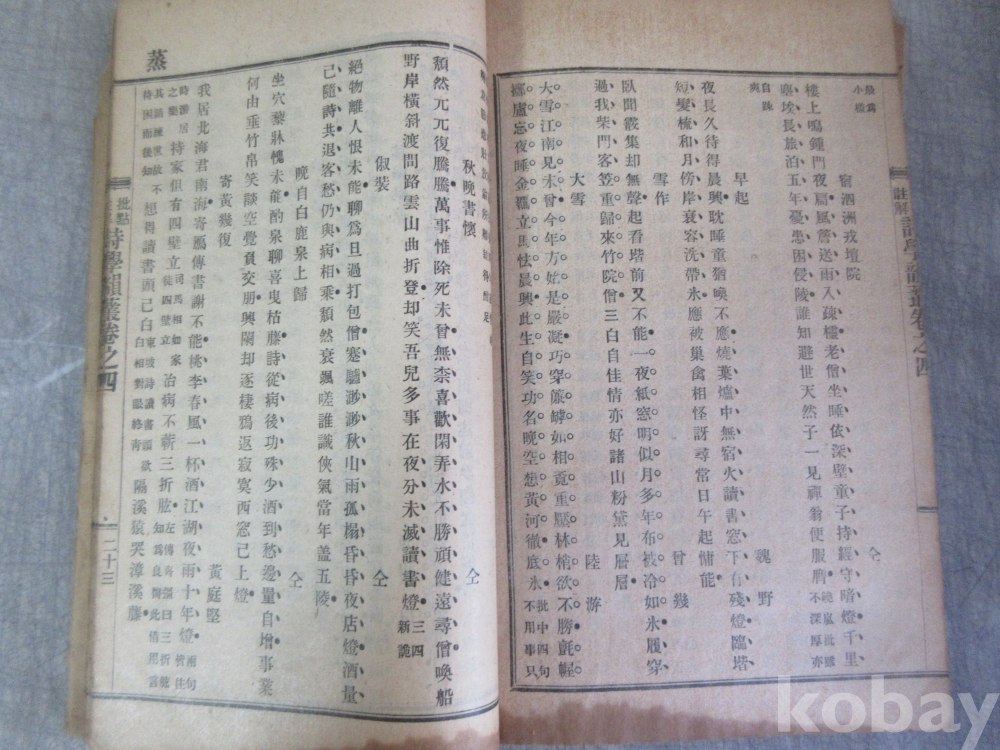 宿泗洲戎壇院 仝
樓上鳴鍾門夜扃風簷送雨入疎櫺老僧坐睡依深壁童子持經守暗燈千里
塵埃長旅泊五年憂患困侵陵誰知避世天然子一見禪翁便服膺 不深厚亦
早起 魏野
夜長久待得晨興耽睡童猶喚不應燒葉爐中無宿火讀書窓下有殘燈臨堦
短髮梳和月傍岸衰容洗帶氷應被巢禽相怪訝尋常日午起慵能
雪作 曾幾
臥聞霰集却無聲起看堦前又不能一夜紙窓明似月多年布被冷如氷履穿
過我柴門客笠重歸來竹院僧三白自佳情亦好諸山粉黛見層層
大雪 陸游
大雪江南見未曾今年方始是嚴凝巧穿簾罅如相覓重壓林梢欲不勝氈幄
擲盧忘夜睡金羈立馬怯晨興此生自笑功名晚空想黃河徹底氷 批中四句不用事只
秋晚書懷 仝
頹然兀兀復騰騰萬事惟除死未曾無柰喜歡閑弄水不勝頑健遠尋僧喚船
野岸橫斜渡問路雲山曲折登却笑吾兒多事在夜分未滅讀書燈 三四新詭
俶裝 仝
絕物離人恨未能聊爲旦過打包僧蹇驢渺渺秋山雨孤榻昏昏夜店燈酒量
已隨詩共退客愁仍與病相乘頹然衰颯嗟誰識俠氣當年盖五陵
晚自白鹿泉上歸 仝
坐穴藜牀愧未能酌泉聊喜曳枯藤詩從病後功殊少酒到愁邊量自增事業
何由垂竹帛笑談空覺負交朋興闌却逐棲鴉返寂寞西窓已上燈
寄黃幾復 黃庭堅
我居北海君南海寄鴈傳書謝不能桃李春風一杯酒江湖夜雨十年燈 兩句
持家但有四壁立 司馬相如家徒四壁立 治病不蘄三折肱 左傳 曰三折肱知爲良醫此借用言
想得讀書頭已白 隔溪猿哭瘴溪藤
蒸
批點詩學韻叢卷之四
二十三
kobay